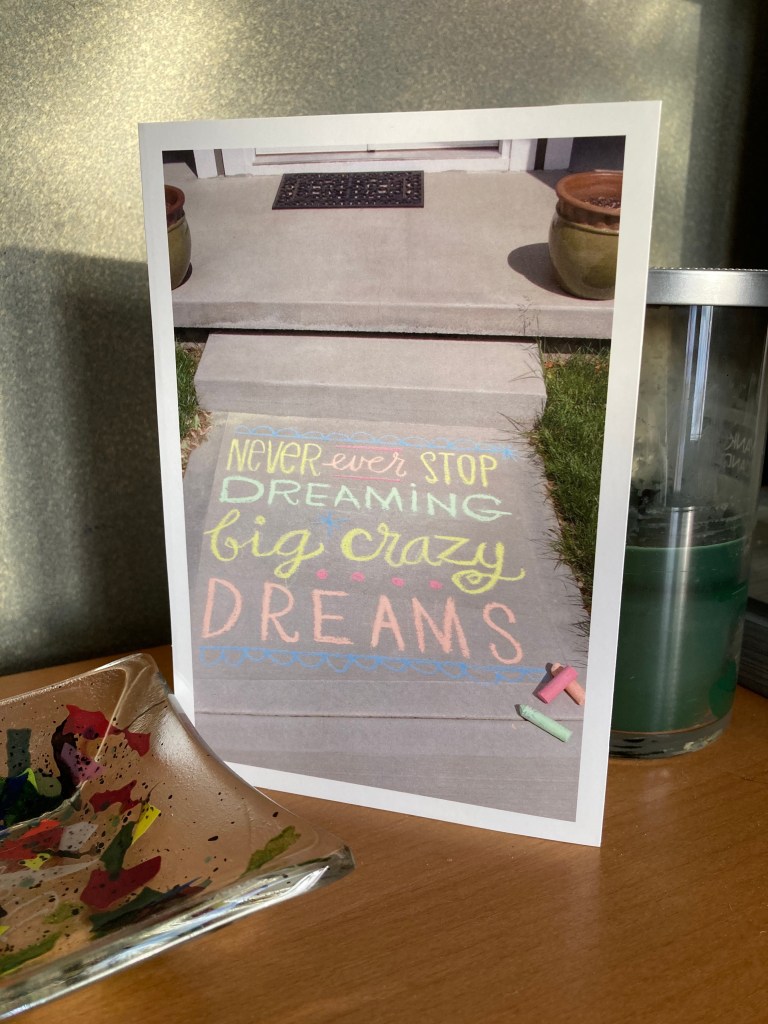 NEVER ever STOP
DREAMING
big crazy
DREAMS